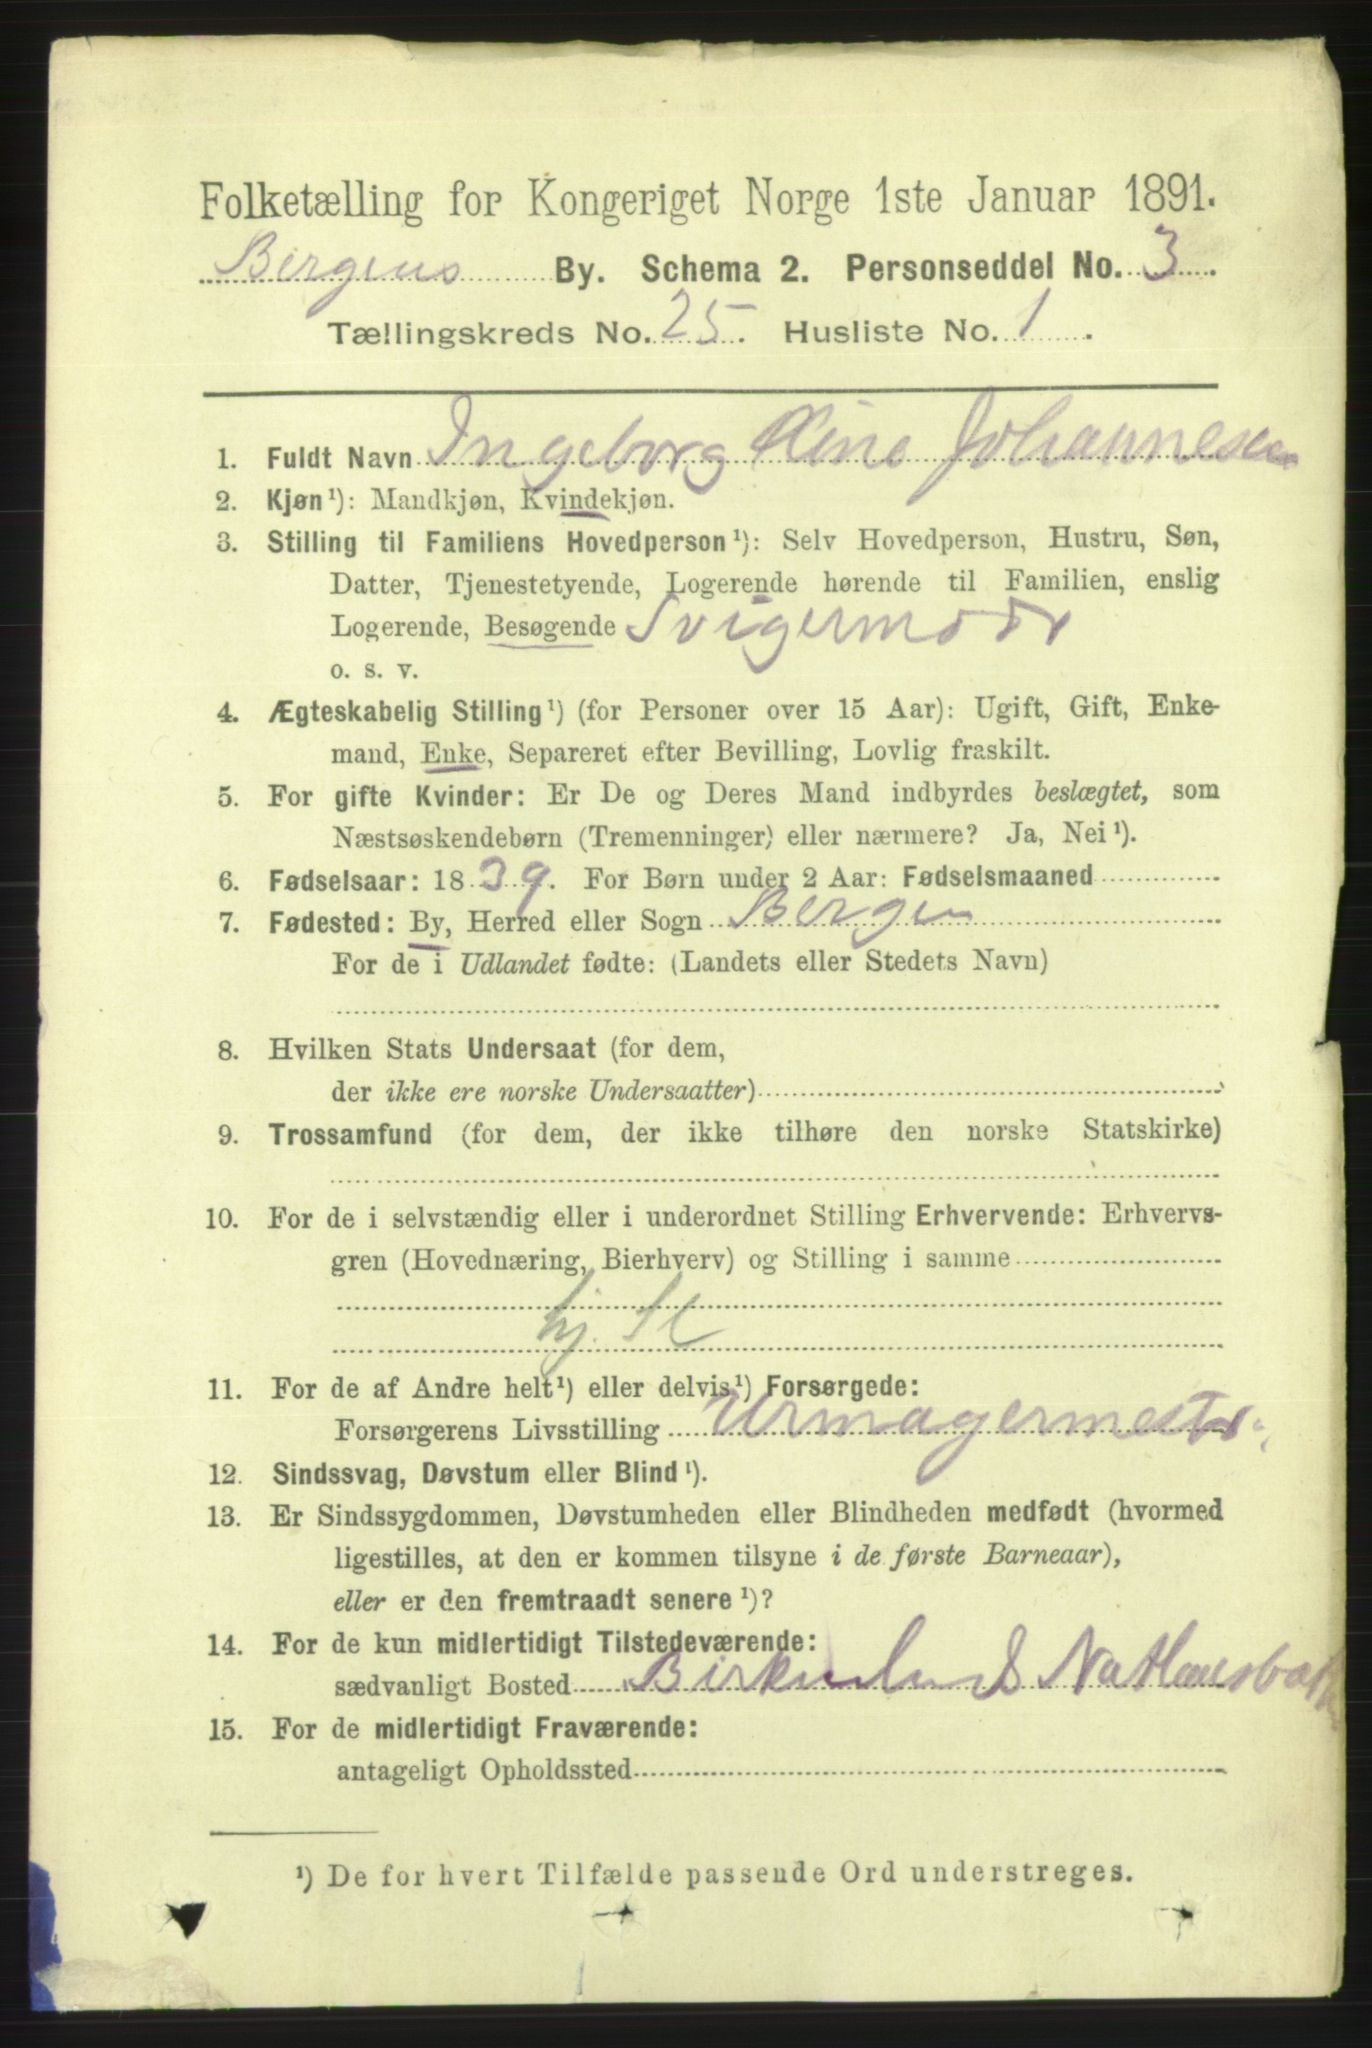 Folketælling for Kongeriget Norge 1ste Januar 1891.
Bergens By. Schema 2. Personseddel No. 3.
Tællingskreds No. 25. Husliste No. 1.
1. Fuldt Navn Ingeborg Johannesen
2. Kjøn¹): Mandkjøn, Kvindekjøn.
3. Stilling til Familiens Hovedperson¹): Selv Hovedperson, Hustru, Søn,
Datter, Tjenestetyende, Logerende hørende til Familien, enslig
Logerende, Besøgende Svigermoder
o. s. v.
4. Ægteskabelig Stilling¹) (for Personer over 15 Aar): Ugift, Gift, Enke-
mand, Enke, Separeret efter Bevilling, Lovlig fraskilt.
5. For gifte Kvinder: Er De og Deres Mand indbyrdes beslægtet, som
Næstsøskendebørn (Tremenninger) eller nærmere? Ja, Nei¹).
6. Fødselsaar: 1839. For Børn under 2 Aar: Fødselsmaaned
7. Fødested: By, Herred eller Sogn Bergen
For de i Udlandet fødte: (Landets eller Stedets Navn)
8. Hvilken Stats Undersaat (for dem,
der ikke ere norske Undersaatter)
9. Trossamfund (for dem, der ikke tilhøre den norske Statskirke)
10. For de i selvstændig eller i underordnet Stilling Erhvervende: Erhvervs-
gren (Hovednæring, Bierhverv) og Stilling i samme
hj.
11. For de af Andre helt¹) eller delvis¹) Forsørgede:
Forsørgerens Livsstilling Urmagermester
12. Sindssvag, Døvstum eller Blind¹).
13. Er Sindssygdommen, Døvstumheden eller Blindheden medfødt (hvormed
ligestilles, at den er kommen tilsyne i de første Barneaar),
eller er den fremtraadt senere¹)?
14. For de kun midlertidigt Tilstedeværende:
sædvanligt Bosted Birkenlund
15. For de midlertidigt Fraværende:
antageligt Opholdssted
¹) De for hvert Tilfælde passende Ord understreges.